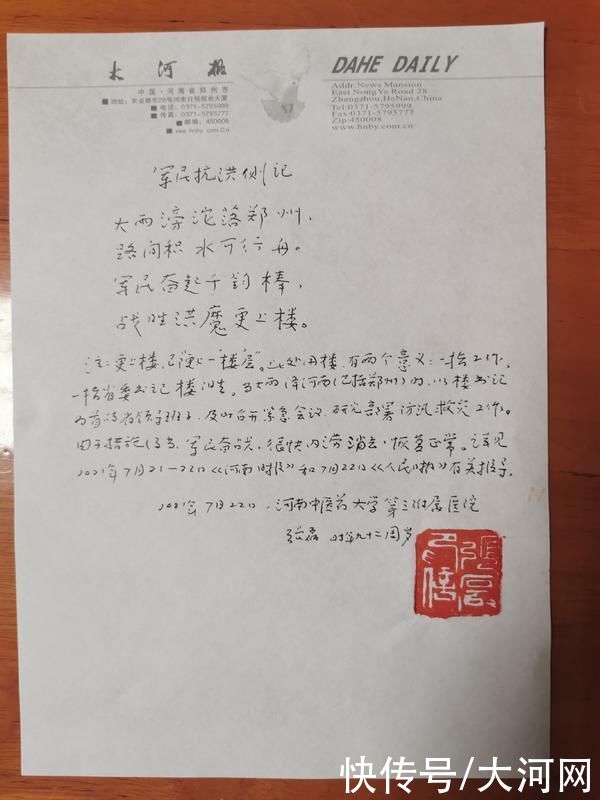 大河报
DAHE DAILY
中国·河南省郑州市
■地址：农业路东28号河南日报报业大厦
■电话：0371-5795999
■传真：0371-5795777
■邮编：450008
■www.hnby.com.Cn
Addr:News Mansion
East Nong Ye Road 28
Zhengzhou,HeNan,China
Tel:0371-5795999
Fax:0371-5795777
Zip:450008
www.hnby.com.cn
军民抗洪侧记
大雨滂沱落郑州，
路间积水可行舟。
军民奋起千钧棒，
战胜洪魔更上楼。
注：更上楼，即“更上一楼层”。此处用楼，有两个意义：一指工作，
一指省委书记楼阳生。当大雨降河南（包括郑州）时，以楼书记
为首的省领导班子，及时召开紧急会议，研究部署防汛救灾工作。
由于措施得当，军民奋战，很快内涝消去，恢复正常。详见
2021年7月21—22日《河南日报》和7月22日《人民日报》有关报导。
2021年7月22日，河南中医药大学第三附属医院
张磊 时年九十二周岁
快传号/大河网